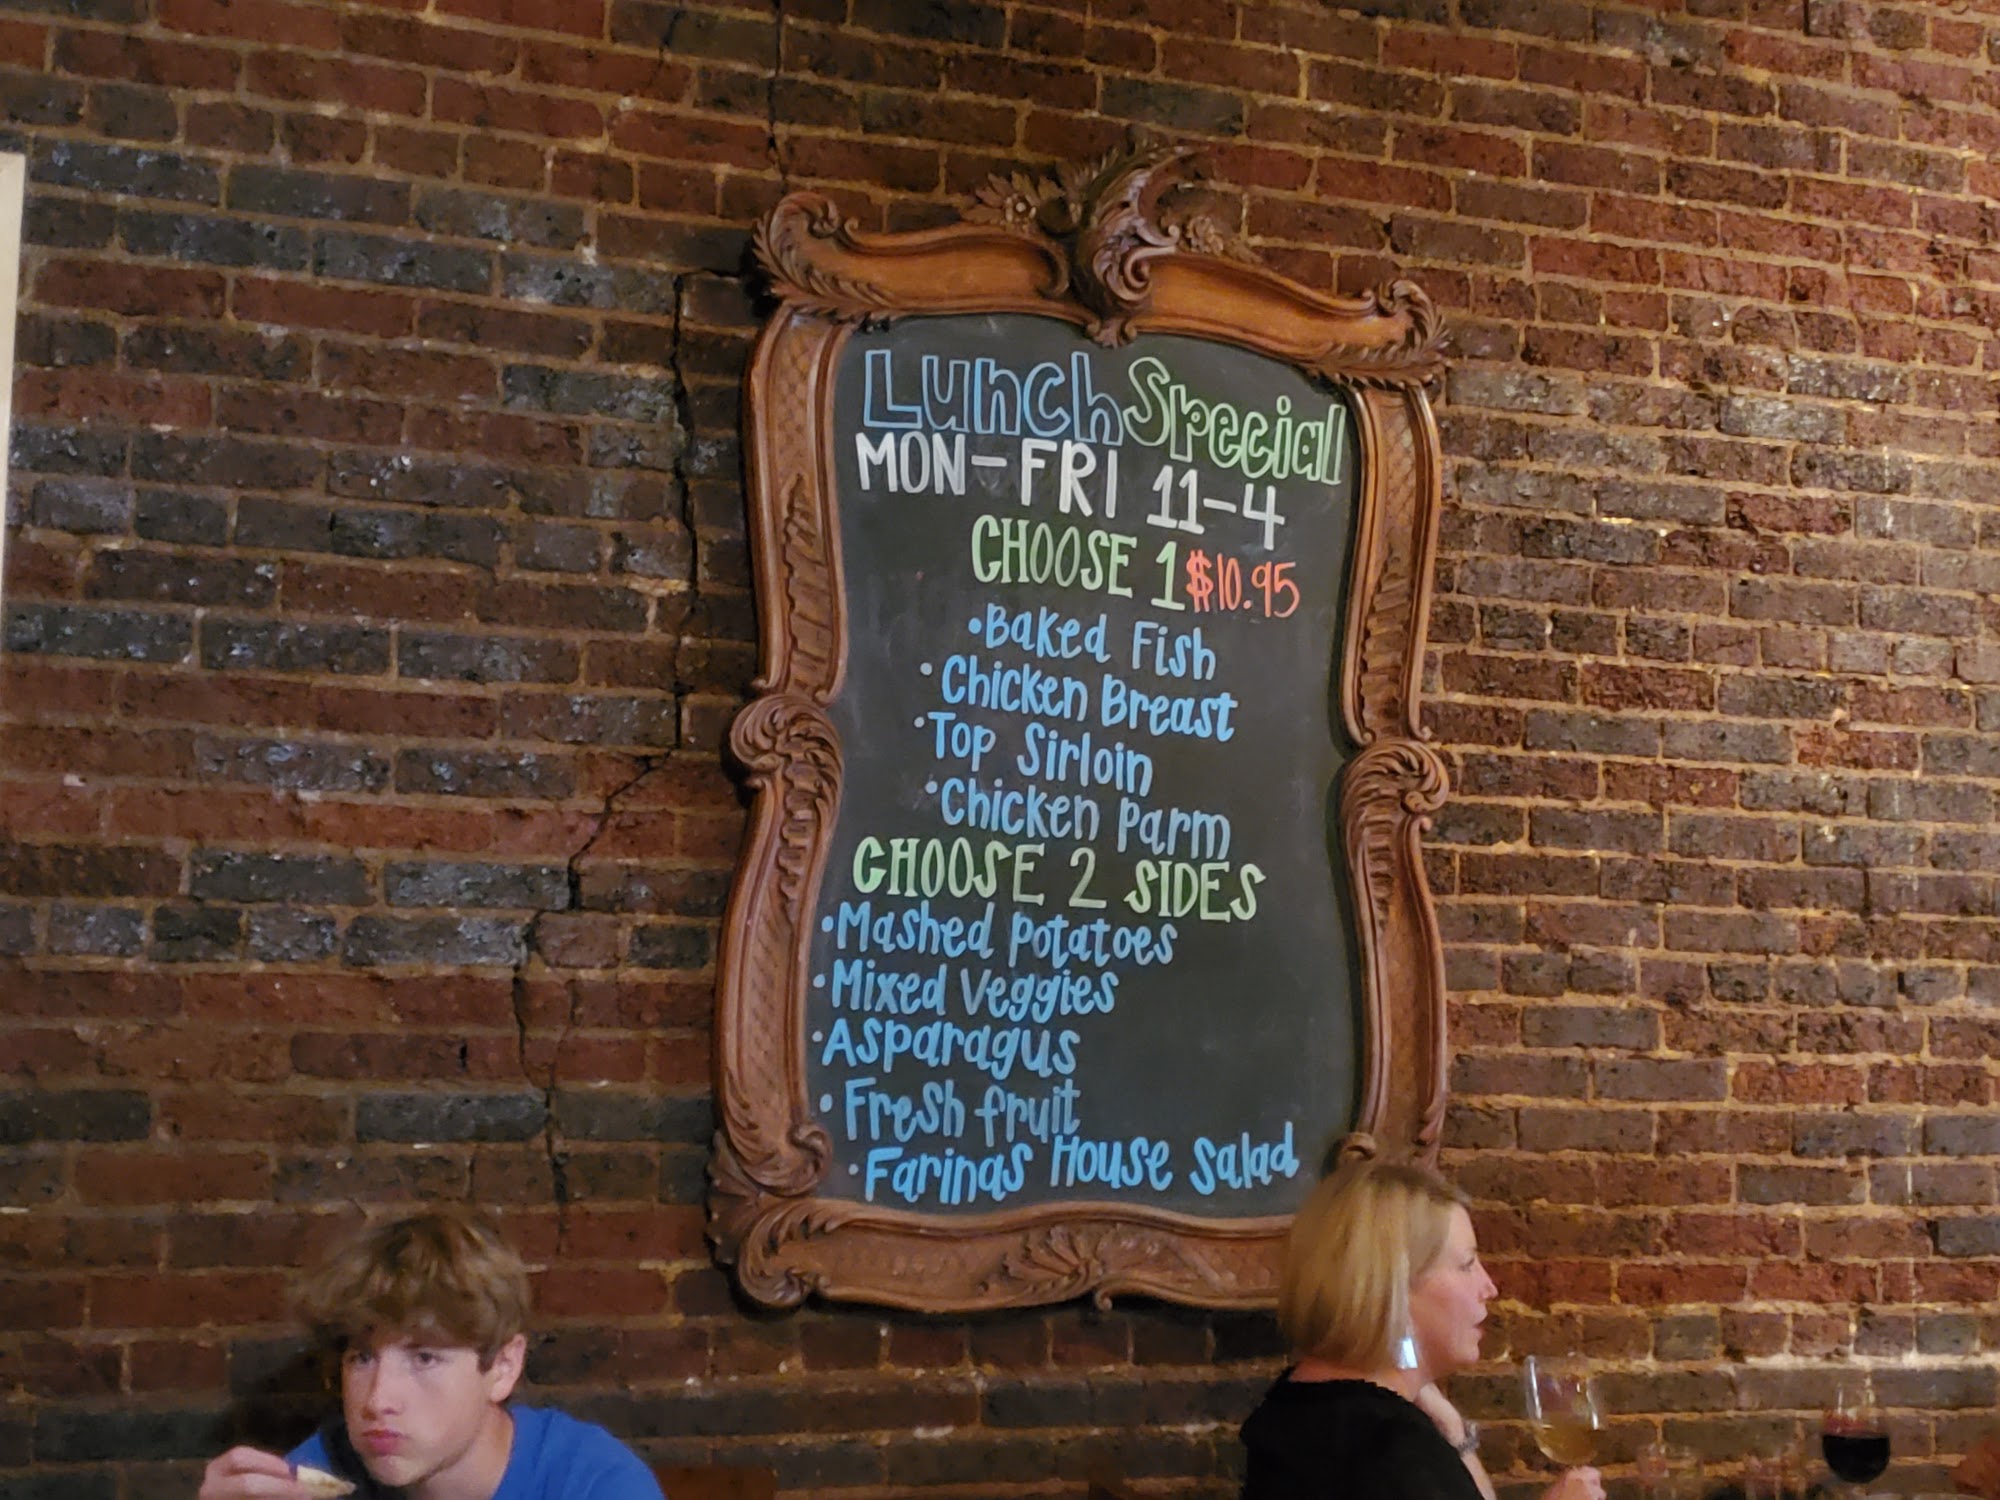 Lunch Special
MON-FRI 11-4
CHOOSE 1 $10.95
•Baked Fish
•Chicken Breast
•Top Sirloin
•Chicken Parm
CHOOSE 2 SIDES
•Mashed Potatoes
•Mixed Veggies
•Asparagus
•Fresh fruit
•Farinas House Salad